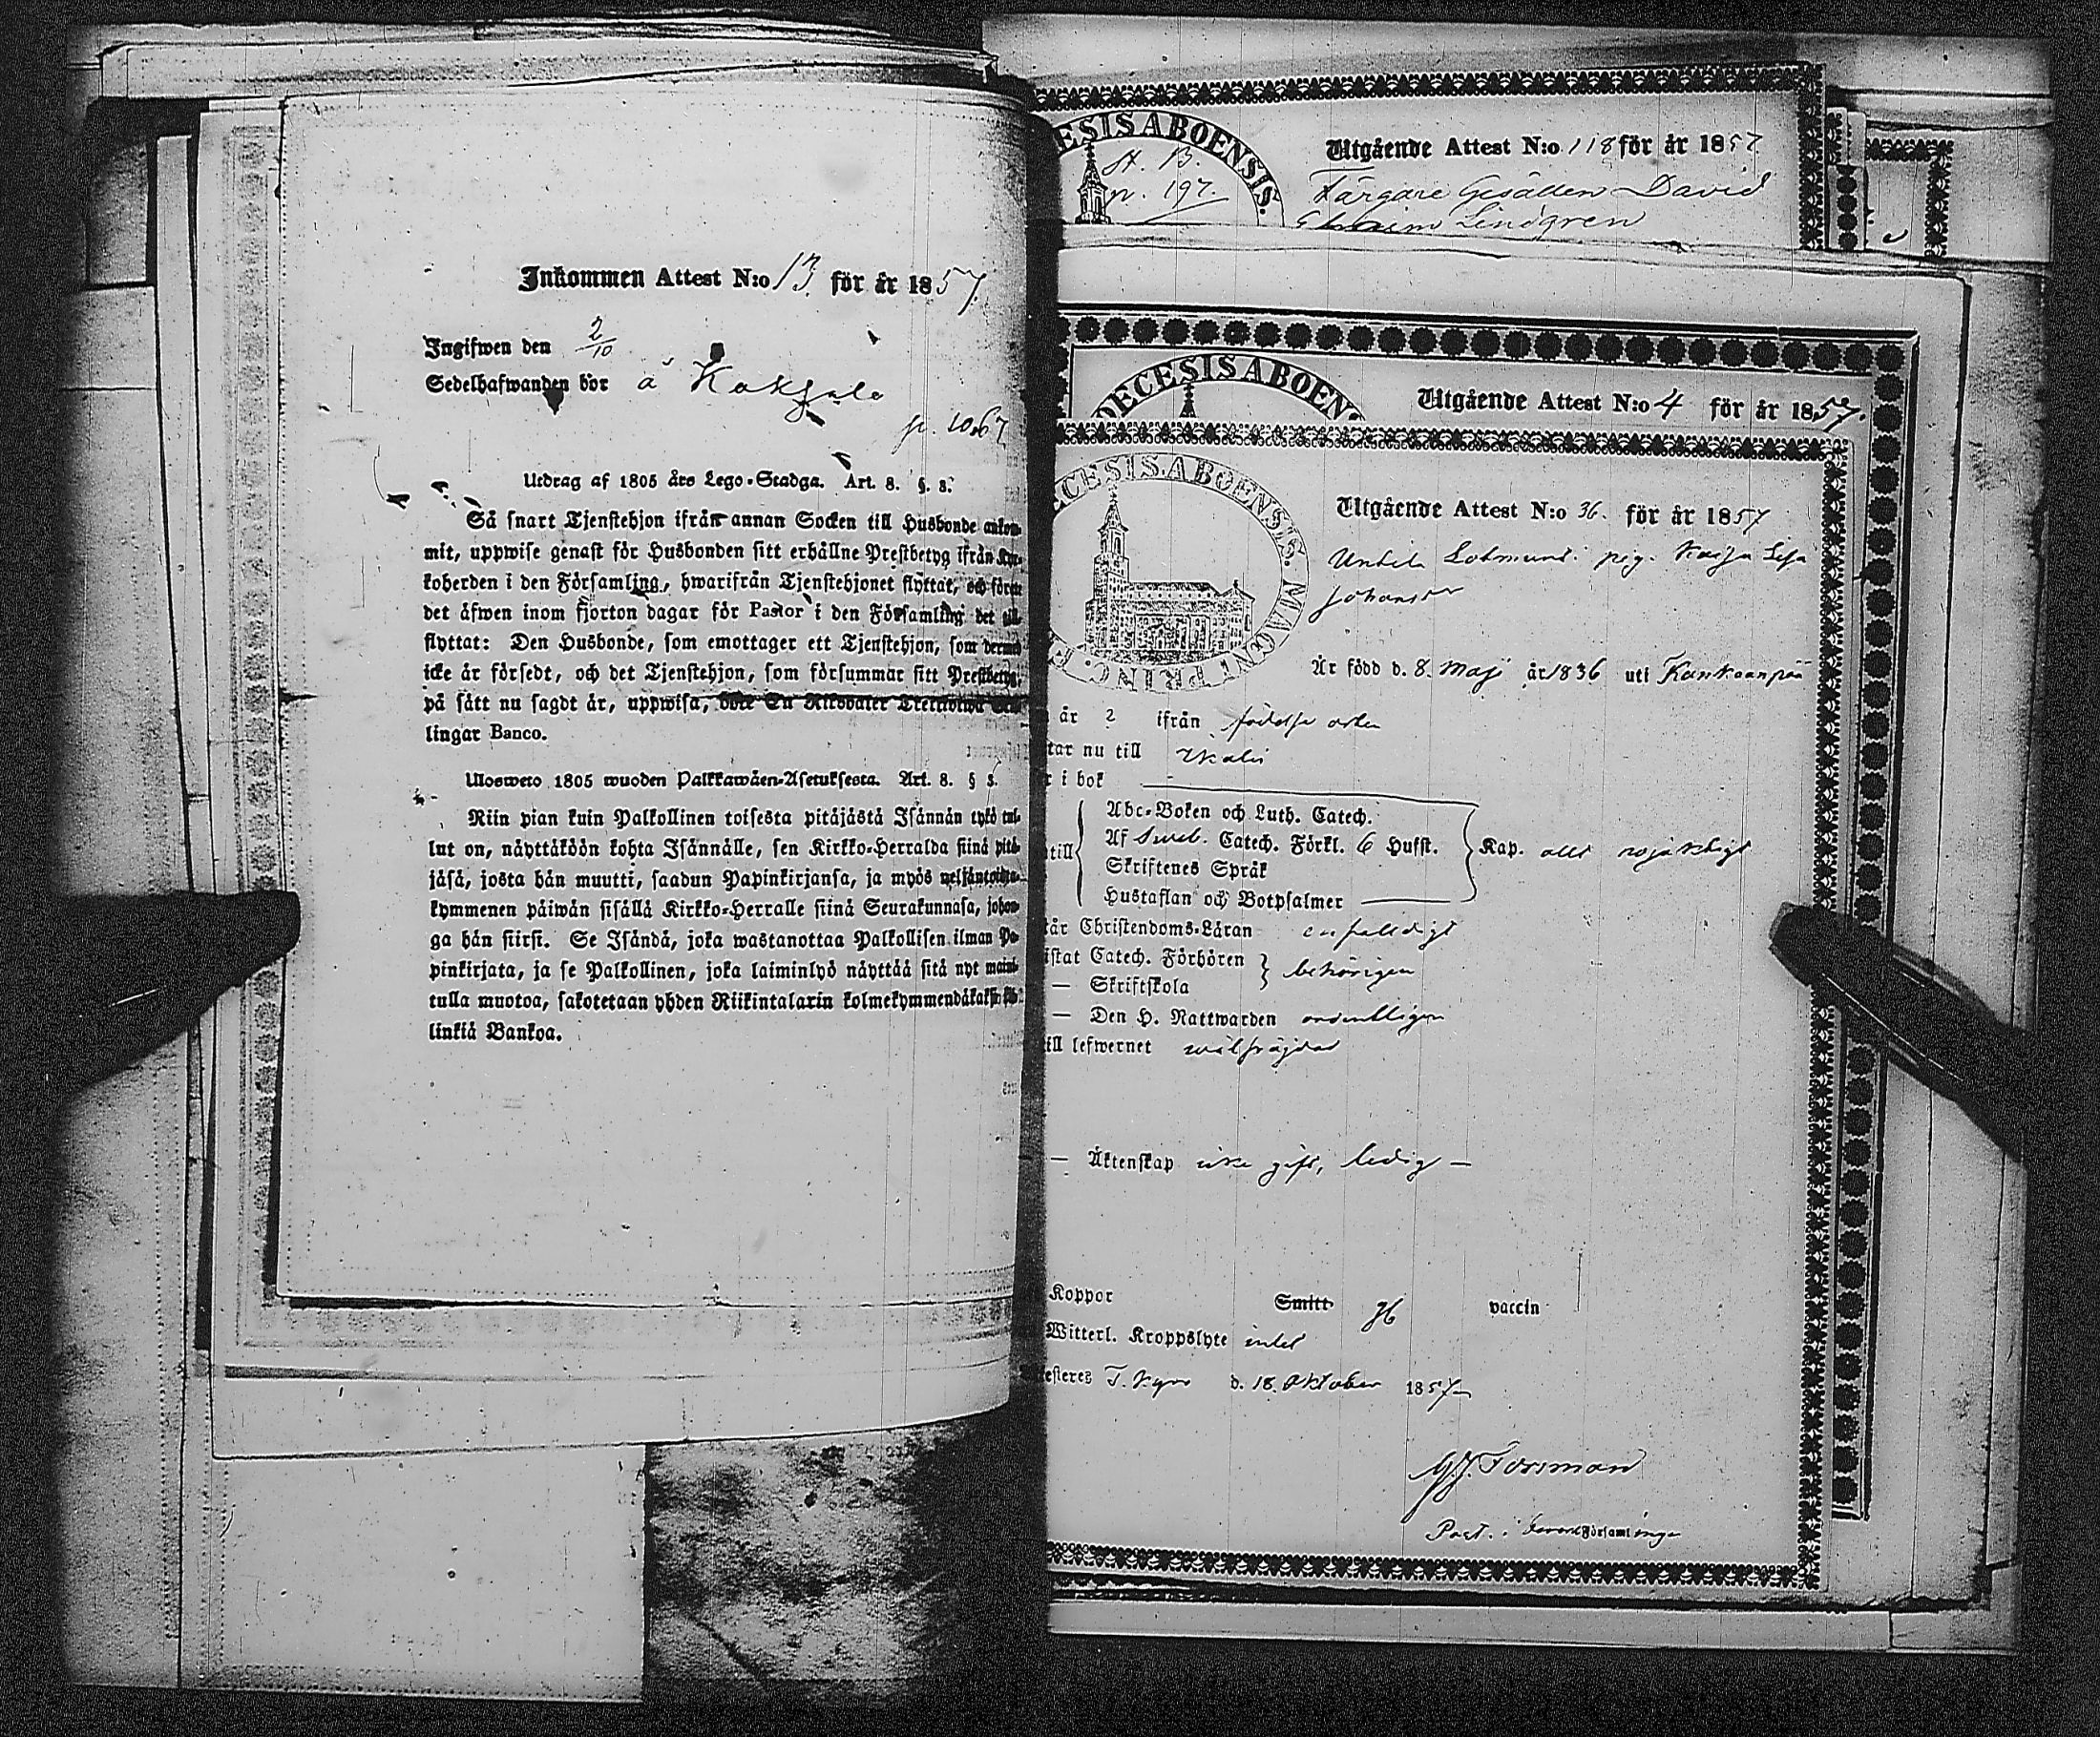 Inkommen Attest N:o 13. för år 1857.
Ingifwen den 2/10
Sedelhafwanden bor å
p. 1067
Utdrag af 1805 års Lego-Stadga. Art. 8. §. 8.
Så snart Tjenstehjon ifrån annan Socken till Husbonde ankom-
mit, uppwise genast för Husbonden sitt erhållne Prestbetyg ifrån Kyr-
koherden i den Församling, hwarifrån Tjenstehjonet flyttat, och förete
det äfwen inom fjorton dagar för Pastor i den Församling det till-
flyttat: Den Husbonde, som emottager ett Tjenstehjon, som dermed
icke är försedt, och det Tjenstehjon, som försummar sitt Prestbetyg,
på sätt nu sagdt är, uppwisa, böte En Riksdaler Trettiotwå Skil-
lingar Banco.
Ulosweto 1805 wuoden Palkkawäen-Asetuksesta. Art. 8. § 8.
Niin pian kuin Palkollinen toisesta pitäjästä Isännän tykö tul-
lut on, näyttäköön kohta Isännälle, sen Kirkko-Herralda siinä pitä-
jäsä, josta hän muutti, saadun Papinkirjansa, ja myös neljäntoista-
kymmenen päiwän sisällä Kirkko-Herralle siinä Seurakunnasa, johon-
ga hän siirsi. Se Isändä, joka wastanottaa Palkollisen ilman Pa-
pinkirjata, ja se Palkollinen, joka laiminlyö näyttää sitä nyt maini-
tulla muotoa, sakotetaan yhden Riikintalarin kolmekymmendäkaksi kil-
linkiä Bankoa.
ESIS ABOENSIS.
St. B.
p. 197.
Utgående Attest N:o 118 för år 1857.
Färgare Gesällen David
Ephraim Lindgren
DECESIS ABOEN
Utgående Attest N:o 4 för år 1857.
ECESIS ABOENSIS. MAGNI PRINC. F
Utgående Attest N:o 36. för år 1857
pig. Kaisa Lisa
Johansdr
Är född d. 8. Maji år 1836 uti Kankaanpää
år 2 ifrån födelse orten
tar nu till Ikalis
r i bok
Abc-Boken och Luth. Catech.
till Af Sweb. Catech. Förkl. 6 Hufst. Kap. allt nöjaktligt
Skriftenes Språk
Hustaflan och Botpsalmer
tår Christendoms-Läran enfaldigt
istat Catech. Förhören behörigen
— Skriftskola
— Den H. Nattwarden ordentligen
ill lefwernet wälfrägdad
— Äktenskap icke gift, ledig —
Koppor Smitt gb vaccin
Witterl. Kroppslyte intet
esteres T. Kyro d. 18. Oktober 1857
Forsman
Past. i Församlinge